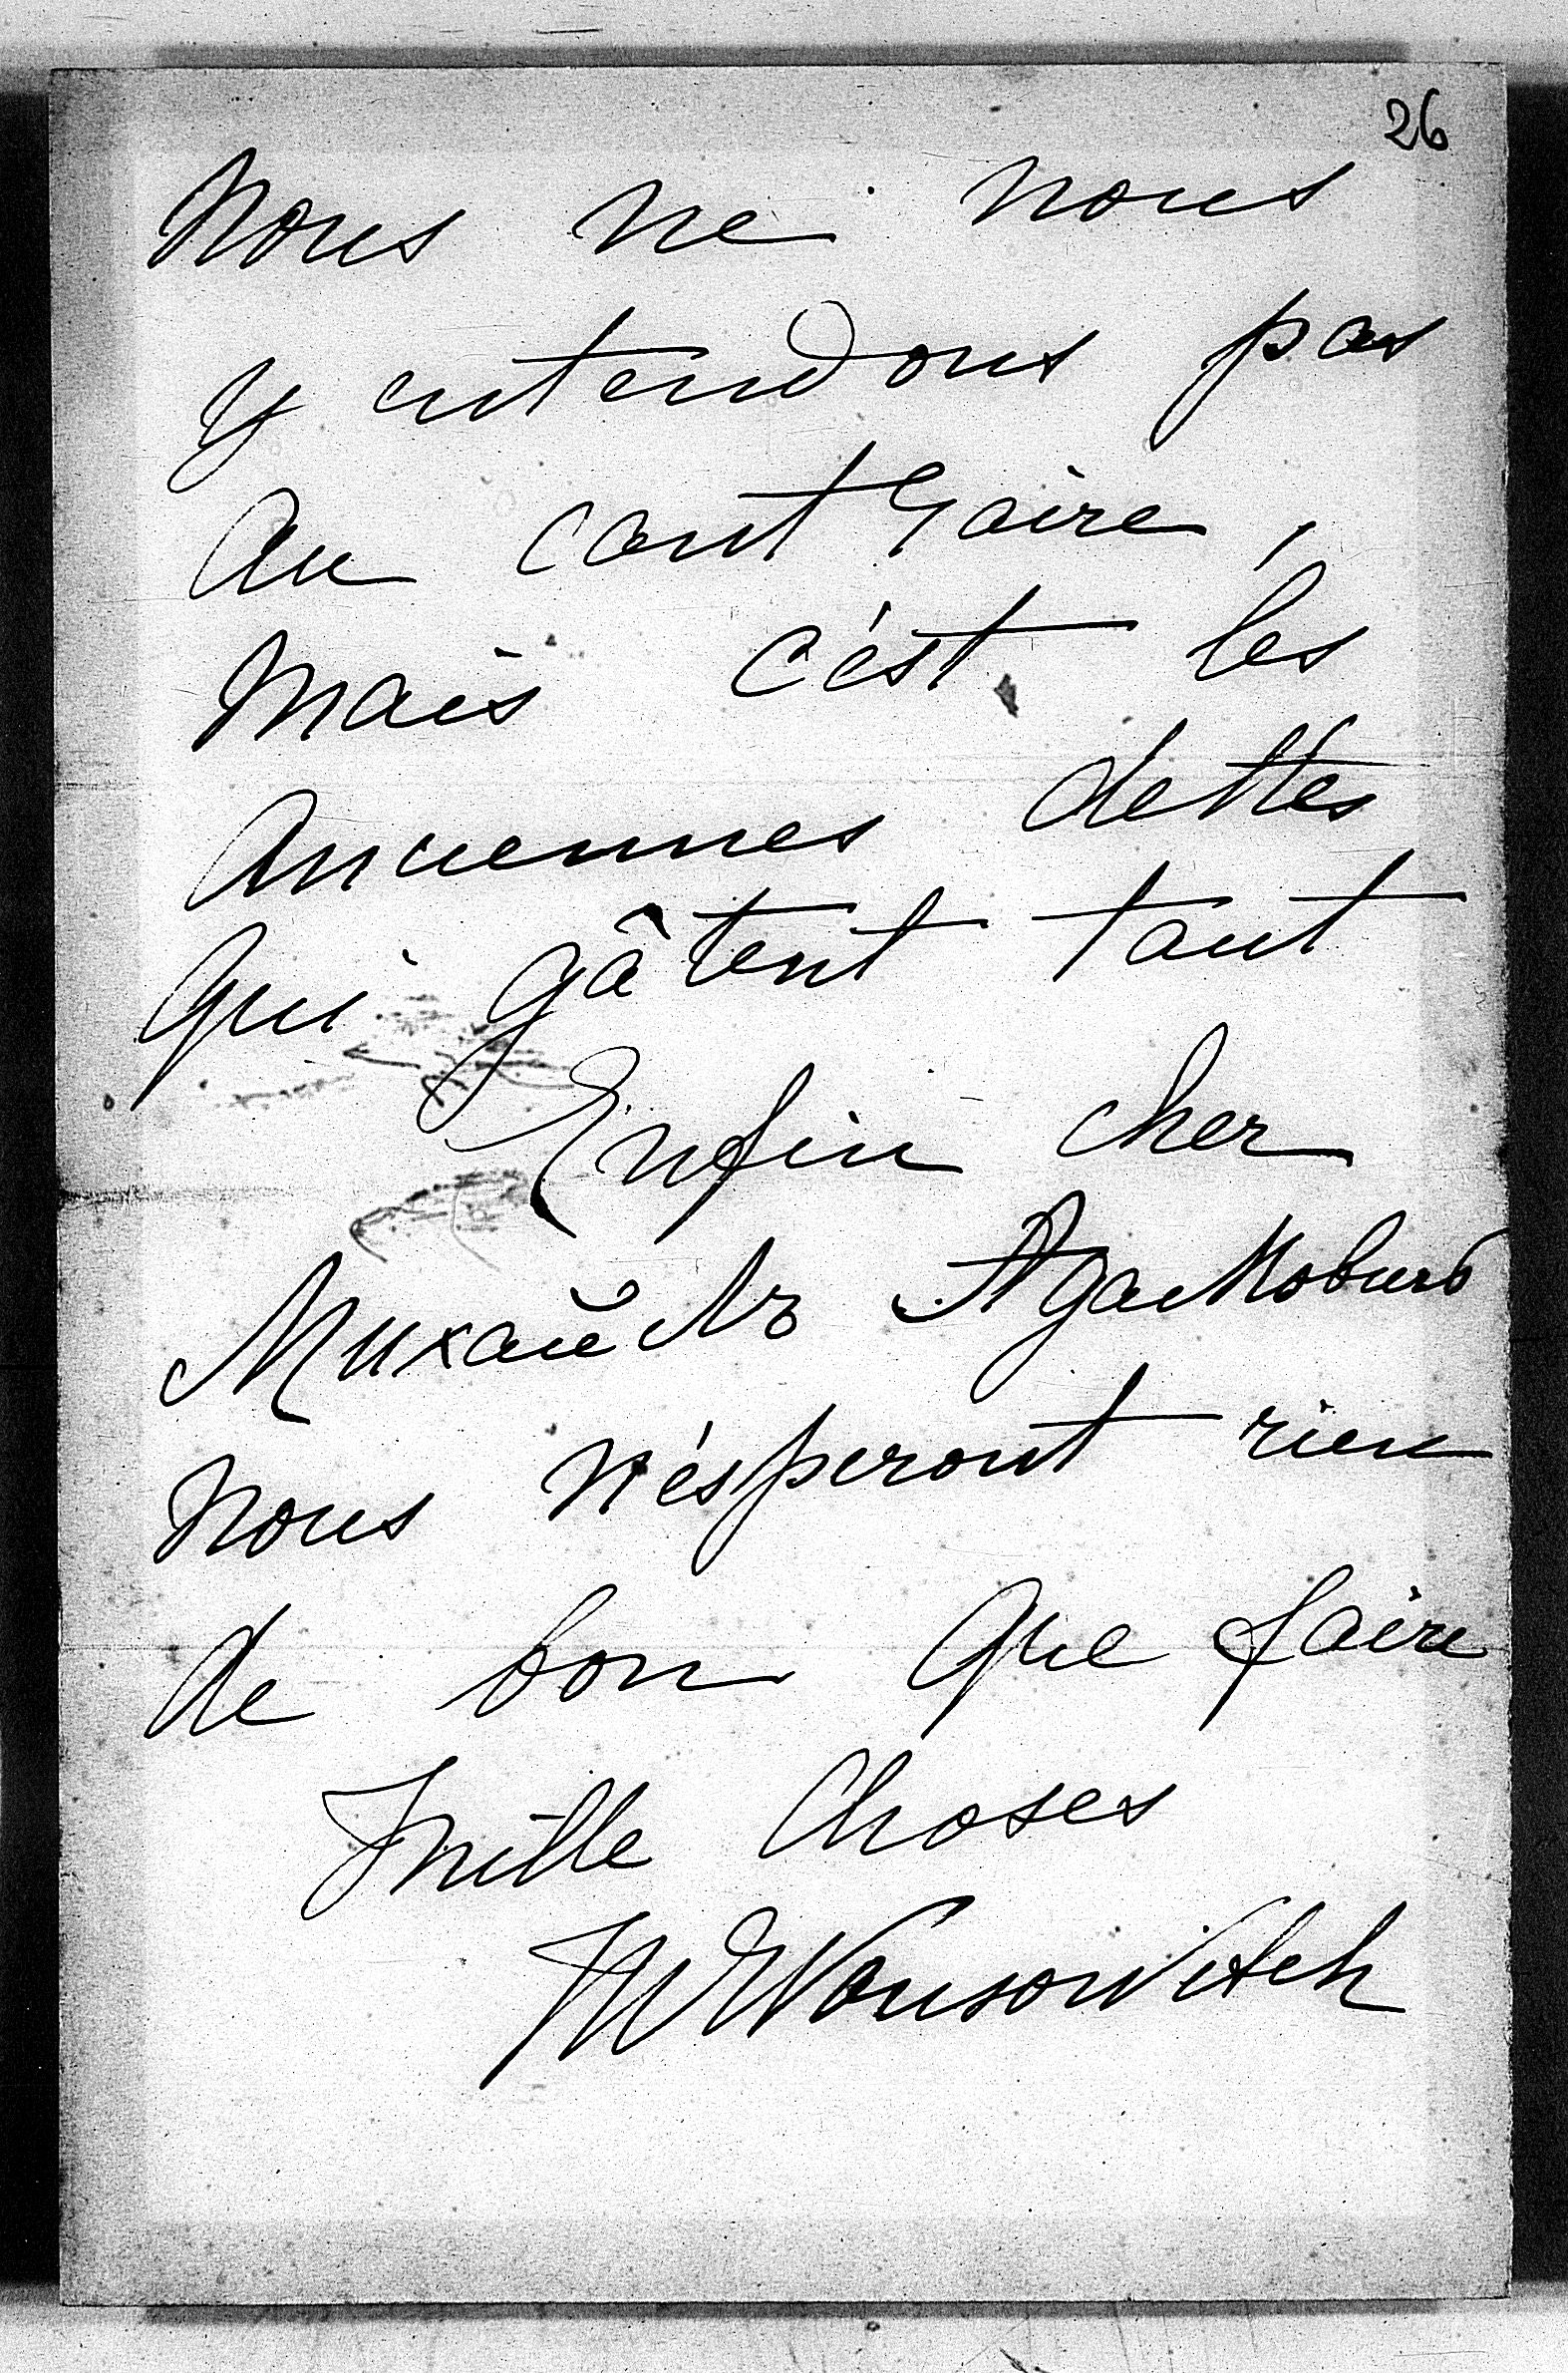 26
Nous ne nous
y entendons pas
au contraire,
mais c'est les
anciennes dettes
qui gâtent tout
Enfin cher
Михаилъ Адамовичъ
nous n'ésperont rien
de bon que faire
Mille choses
MWonsowitch